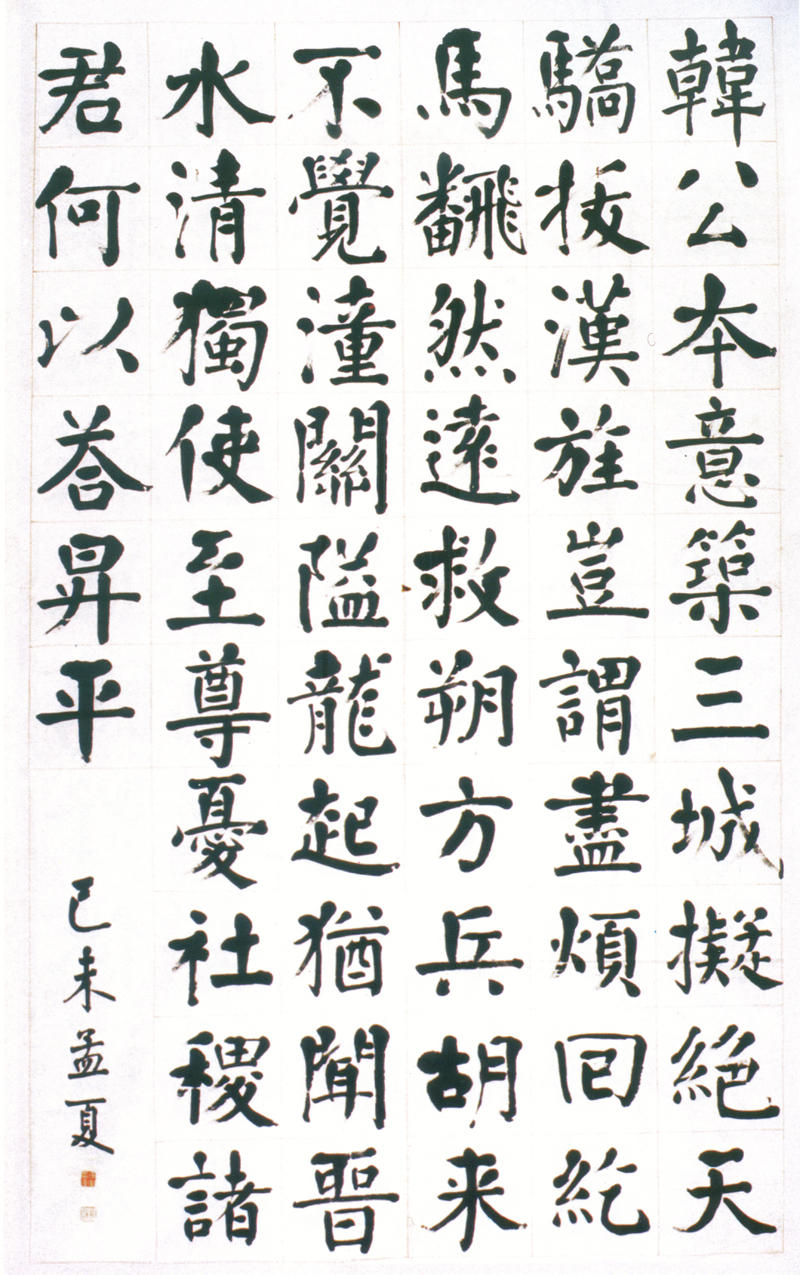 韓公本意築三城擬絶天
驕拔漢旌豈謂盡煩回紇
馬飜然遠救朔方兵胡来
不覺潼關隘龍起猶聞晉
水清獨使至尊憂社稷諸
君何以荅昇平
己未孟夏